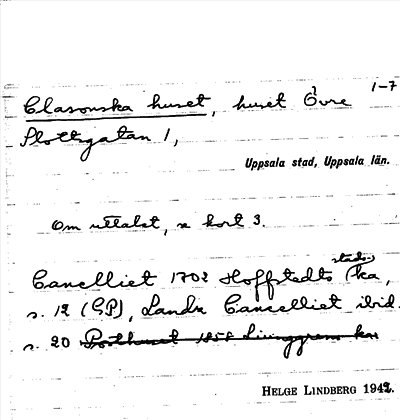 1-7
Clasonska huset, huset Övre
Slottsgatan 1,
Uppsala stad, Uppsala län.
Om uttalet, se kort 3.
Cancelliet 1702 Hoffstedts stads ka,
s. 12 (GP), Landz Cancelliet ibid.
s. 20 Posthuset 1858 Ljunggrens ka
HELGE LINDBERG 1942.